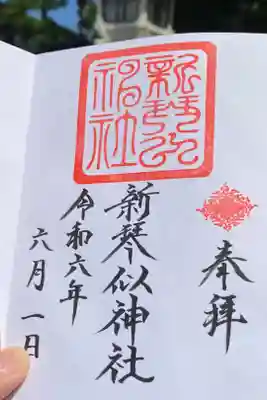 奉拝
新琴似神社
新琴似神社
令和六年
六月一日